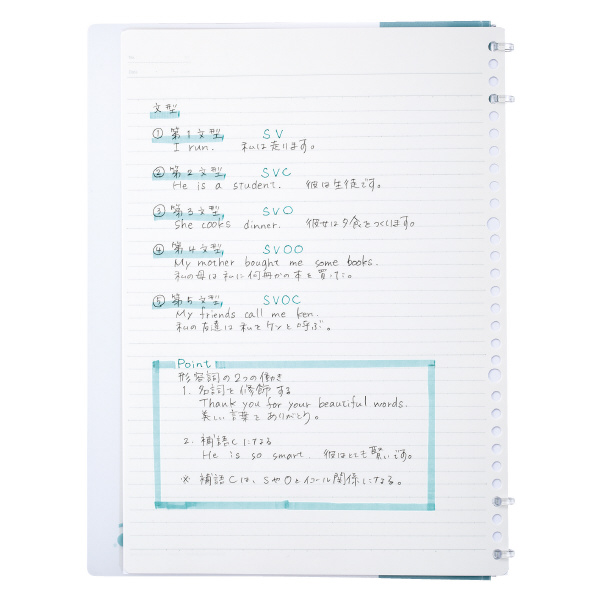 文型
① 第1文型 SV
I run. 私は走ります。
② 第2文型 SVC
He is a student. 彼は生徒です。
③ 第3文型 SVO
She cooks dinner. 彼女は夕食をつくります。
④ 第4文型 SVOO
My mother bought me some books.
私の母は私に何冊かの本を買った。
⑤ 第5文型 SVOC
My friends call me Ken.
私の友達は私をケンと呼ぶ。
Point
形容詞の2つの働き
1. 名詞を修飾する
Thank you for your beautiful words.
美しい言葉をありがとう。
2. 補語Cになる
He is so smart. 彼はとても賢いです。
※ 補語Cは、SやOとイコール関係になる。